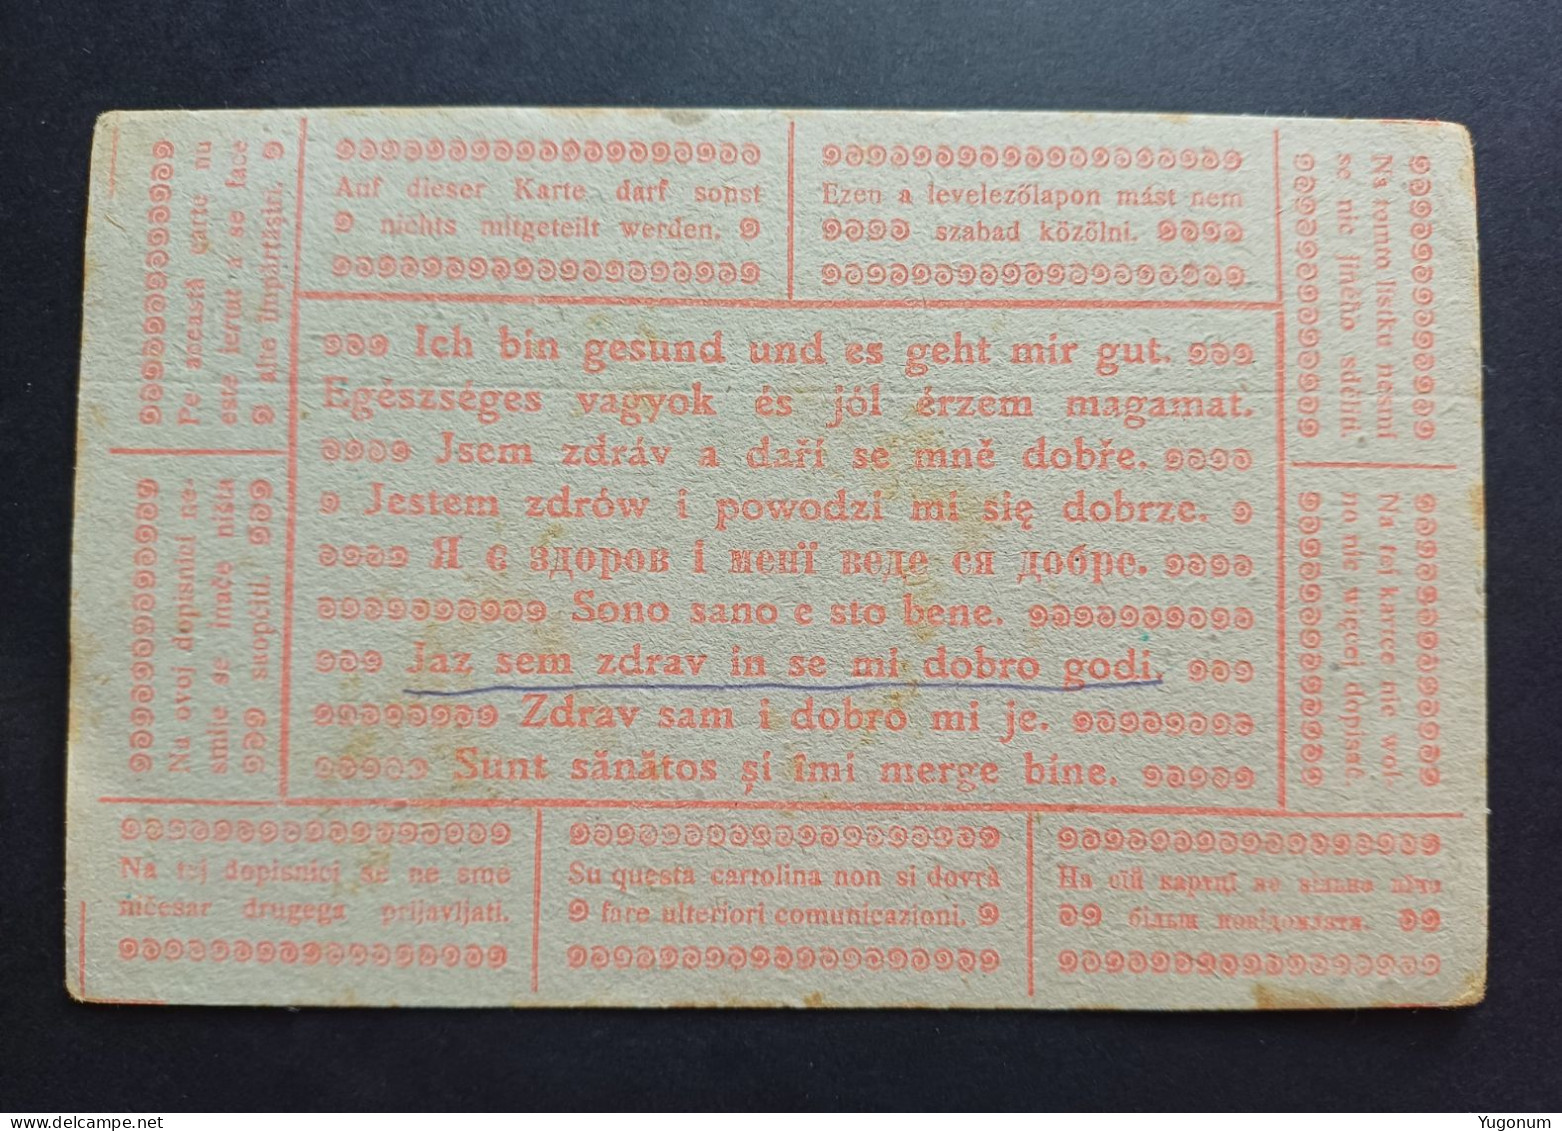 Auf dieser Karte darf sonst
nichts mitgeteilt werden.
Ezen a levelezőlapon mást nem
szabad közölni.
Na tomto lístku nesmí
se nic jiného sděliti.
Na tej kartce nie wol-
no nic więcej dopisać.
Pe această carte nu
este iertat a se face
alte împărtășiri.
Na ovoj dopisnici ne-
smije se inače ništa
saopćiti.
Ich bin gesund und es geht mir gut.
Egészséges vagyok és jól érzem magamat.
Jsem zdráv a daří se mně dobře.
Jestem zdrów i powodzi mi się dobrze.
Я є здоров і менї веде ся добре.
Sono sano e sto bene.
Jaz sem zdrav in se mi dobro godi.
Zdrav sam i dobro mi je.
Sunt sănătos și îmi merge bine.
Na tej dopisnici se ne sme
ničesar drugega prijavljati.
Su questa cartolina non si dovrà
fare ulteriori comunicazioni.
На сїй картцї не вільно нїчо
більш повідомляти.
Yugonum
delcampe.net